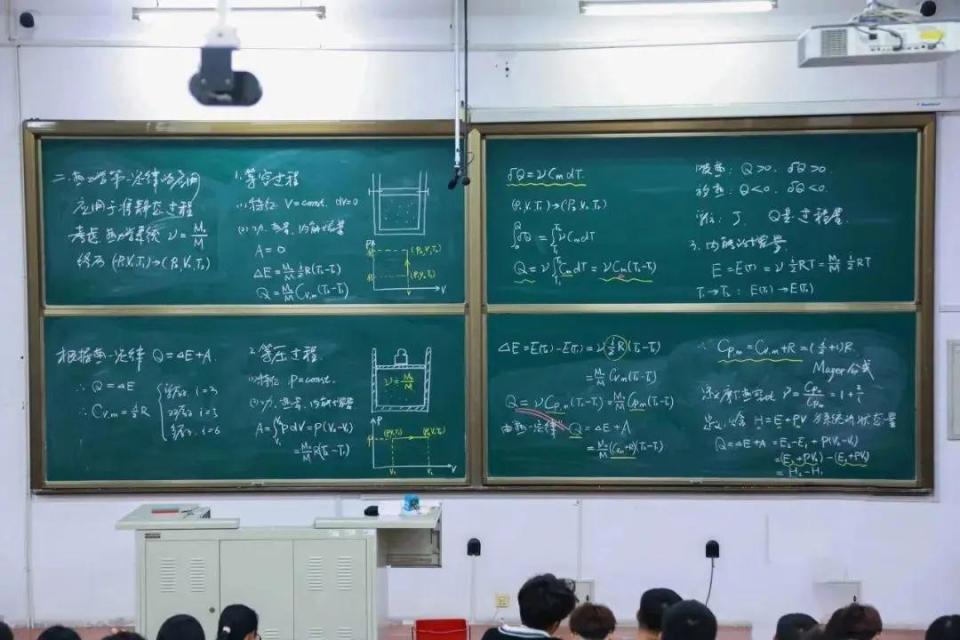 二.热力学第一定律的应用
应用于准静态过程
考虑热力学系统 ν = M₀/M
终态 (P₁V₁T₁)→(P₂,V₂T₂)
1.等容过程
(1)特征 V=const. dV=0
(2)功.热量.内能增量
A = 0
ΔE = M₀/M i/2 R(T₂-T₁)
Q = M₀/M Cv,m(T₂-T₁)
P
V
根据热一定律 Q = ΔE + A
∴ Q = ΔE
∴ Cv,m = i/2 R
i=3
i=6
2.等压过程
(1)特征 P=const.
(2)功.热量.内能增量
A = ∫PdV = P(V₂-V₁)
= M₀/M R(T₂-T₁)
ν = M₀/M
P
V₁
V₂
V
đQ = νCmdT
(P₁V₁T₁)→(P₂V₂T₂)
∫đQ = ∫νCmdT
Q = ν∫CmdT = νCm(T₂-T₁)
吸热: Q>0. đQ>0.
放热: Q<0. đQ<0.
J. Q是过程量.
3.内能的增量
E = E(T) = ν i/2 RT = M₀/M i/2 RT
T₁→T₂ : E(T₁)→E(T₂)
ΔE = E(T₂)-E(T₁) = ν i/2 R(T₂-T₁)
= M₀/M Cv,m(T₂-T₁)
Q = νCp,m(T₂-T₁) = M₀/M Cp,m(T₂-T₁)
由热一定律 Q = ΔE + A
= M₀/M (Cv,m+R)(T₂-T₁)
∴ Cp,m = Cv,m+R = (i/2+1)R
Mayer公式
H = E + PV 为系统的状态量
Q = ΔE+A = E₂-E₁ + P(V₂-V₁)
= (E₂+PV₂)-(E₁+PV₁)
= H₂-H₁